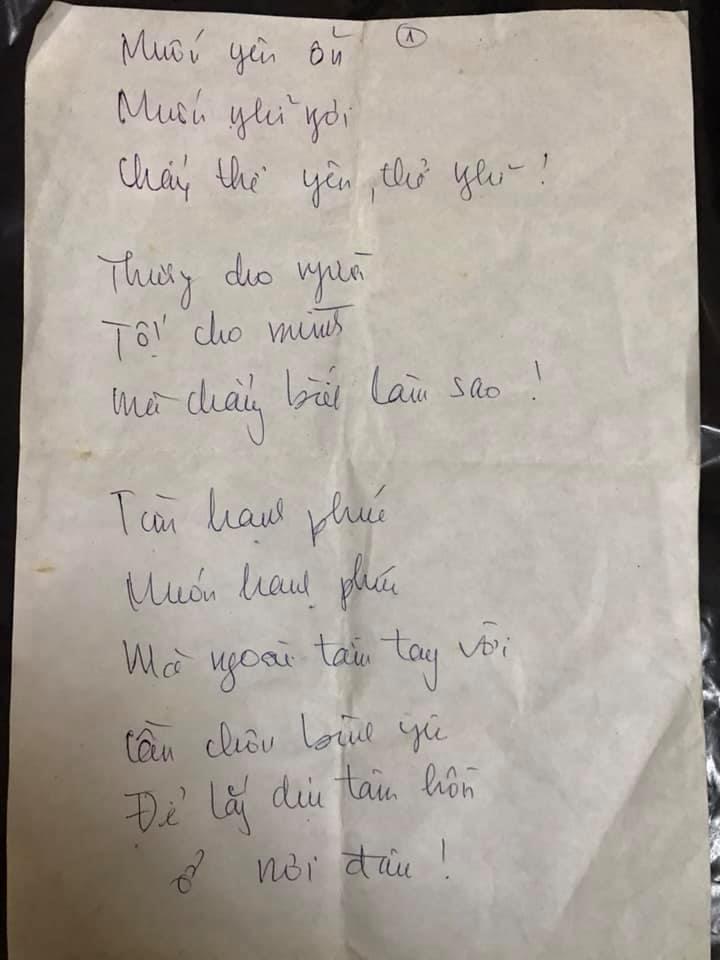 ①
Muốn yên ổn
Muốn nghỉ ngơi
Chẳng thể yên, thể nghỉ!
Thương cho người
Tội cho mình
Mà chẳng biết làm sao!
Tìm hạnh phúc
Muốn hạnh phúc
Mà ngoài tầm tay với
Cần chốn bình yên
Để lắng dịu tâm hồn
ở nơi đâu!